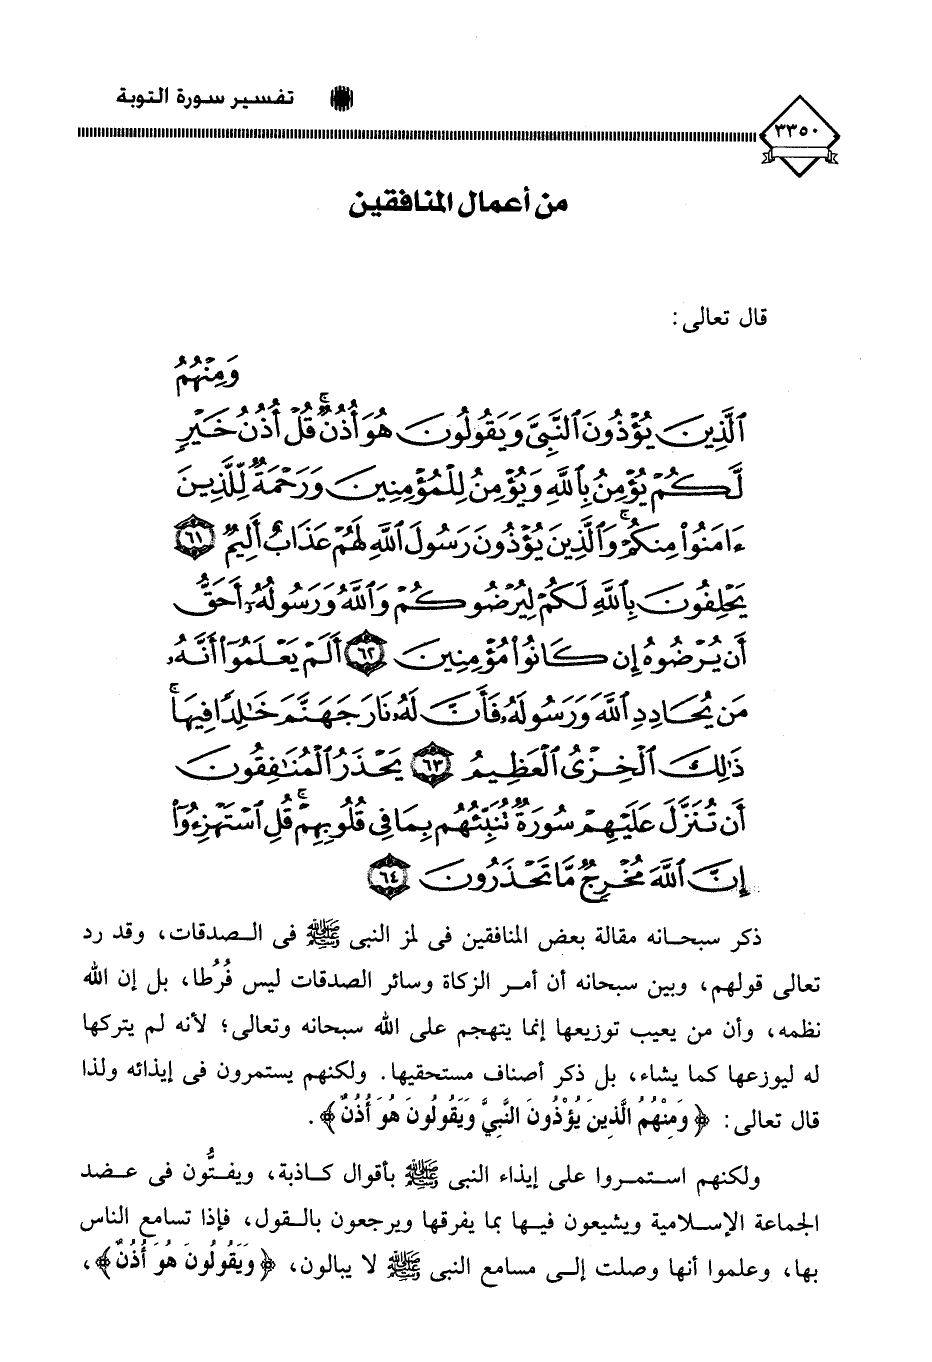 تفسير سورة التوبة
٣٣٥٠
من أعمال المنافقين
قال تعالى:
وَمِنْهُمُ
ٱلَّذِينَ يُؤْذُونَ ٱلنَّبِىَّ وَيَقُولُونَ هُوَ أُذُنٌ ۚ قُلْ أُذُنُ خَيْرٍ
لَّكُمْ يُؤْمِنُ بِٱللَّهِ وَيُؤْمِنُ لِلْمُؤْمِنِينَ وَرَحْمَةٌ لِّلَّذِينَ
ءَامَنُوا۟ مِنكُمْ ۚ وَٱلَّذِينَ يُؤْذُونَ رَسُولَ ٱللَّهِ لَهُمْ عَذَابٌ أَلِيمٌ ٦١
يَحْلِفُونَ بِٱللَّهِ لَكُمْ لِيُرْضُوكُمْ وَٱللَّهُ وَرَسُولُهُۥٓ أَحَقُّ
أَن يُرْضُوهُ إِن كَانُوا۟ مُؤْمِنِينَ ٦٢ أَلَمْ يَعْلَمُوٓا۟ أَنَّهُۥ
مَن يُحَادِدِ ٱللَّهَ وَرَسُولَهُۥ فَأَنَّ لَهُۥ نَارَ جَهَنَّمَ خَٰلِدًا فِيهَا ۚ
ذَٰلِكَ ٱلْخِزْىُ ٱلْعَظِيمُ ٦٣ يَحْذَرُ ٱلْمُنَٰفِقُونَ
أَن تُنَزَّلَ عَلَيْهِمْ سُورَةٌ تُنَبِّئُهُم بِمَا فِى قُلُوبِهِمْ ۚ قُلِ ٱسْتَهْزِءُوٓا۟
إِنَّ ٱللَّهَ مُخْرِجٌ مَّا تَحْذَرُونَ ٦٤
ذكر سبحانه مقالة بعض المنافقين فى لمز النبى ﷺ فى الصدقات، وقد رد
تعالى قولهم، وبين سبحانه أن أمر الزكاة وسائر الصدقات ليس فُرُطا، بل إن الله
نظمه، وأن من يعيب توزيعها إنما يتهجم على الله سبحانه وتعالى؛ لأنه لم يتركها
له ليوزعها كما يشاء، بل ذكر أصناف مستحقيها. ولكنهم يستمرون فى إيذائه ولذا
قال تعالى: ﴿وَمِنْهُمُ الَّذِينَ يُؤْذُونَ النَّبِيَّ وَيَقُولُونَ هُوَ أُذُنٌ﴾.
ولكنهم استمروا على إيذاء النبى ﷺ بأقوال كاذبة، ويفتُّون فى عضد
الجماعة الإسلامية ويشيعون فيها بما يفرقها ويرجعون بالقول، فإذا تسامع الناس
بها، وعلموا أنها وصلت إلى مسامع النبى ﷺ لا يبالون، ﴿وَيَقُولُونَ هُوَ أُذُنٌ﴾،